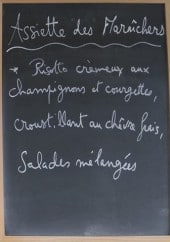 Assiette des Maraîchers
* Risotto crèmeux aux
champignons et courgettes,
croust.llant au chèvre frais,
Salades mélangées